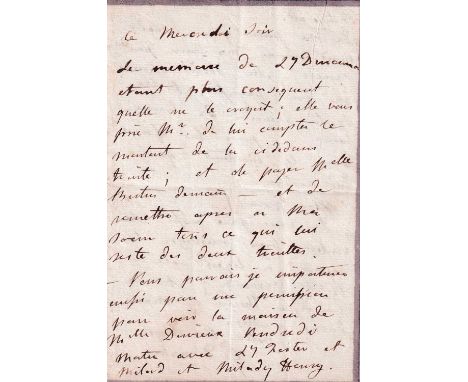 Ce Mercredi Soir
Le memoire de L4
etant plus consequent
quelle ne le croyoit; elle vous
prie Mr. de lui compter le
montant de la cidedans
traitte; et de payer Melle
demain — et de
remettre apres a Ma
Soeur tous ce qui lui
reste des deux traittes.
— Vous pourois je importuner
aussi pour une permission
pour voir la maison de
Melle Vendredi
Matin avec L4 et
Milord et Milady Henry.